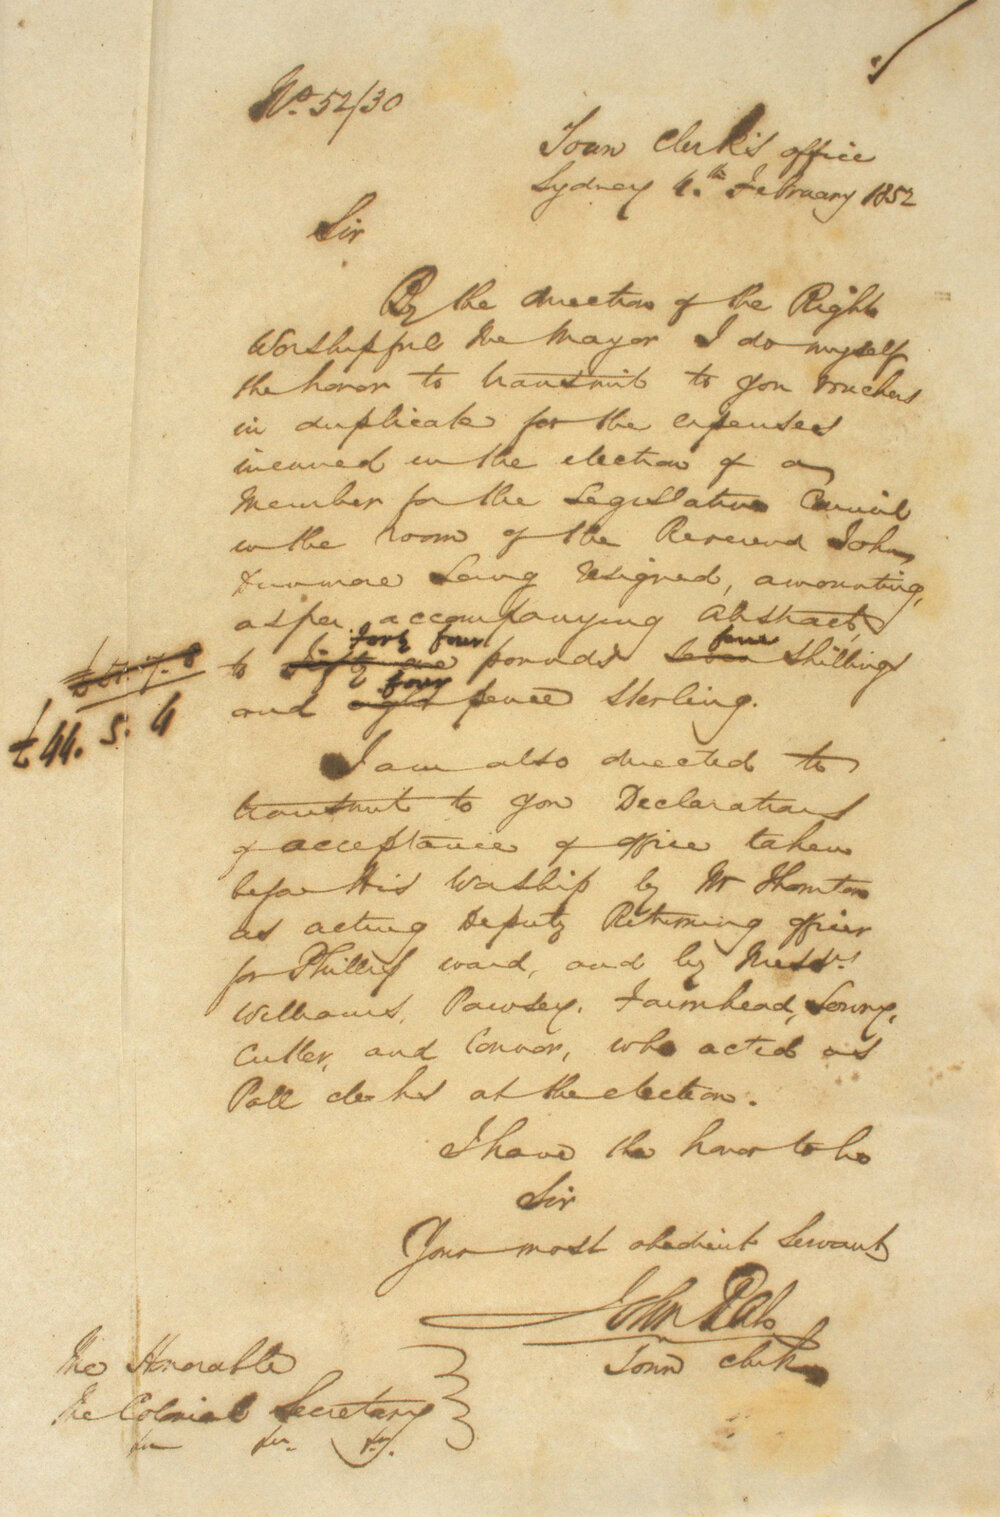 No. 52/30
Town Clerk's office
Sydney 4th February 1852
Sir
By the direction of the Right
Worshipful the Mayor I do myself
the honor to transmit to you vouchers
in duplicate for the expenses
incurred in the election of a
Member for the Legislative Council
in the room of the Reverend John
Dunmore Lang resigned, amounting,
as per accompanying Abstract,
forty four five
to fifty one pounds seven shillings
£51. 7. 8
four
and eight pence sterling.
£44. 5. 4
I am also directed to
transmit to you Declarations
of acceptance of office taken
before His Worship by Mr Thornton
as acting Deputy Returning officer
for Phillip ward, and by Messrs
Williams, Pawsey, Fairnhead, Lowry,
Cutler, and Connor, who acted as
Poll clerks at the election.
I have the honor to be
Sir
Your most obedient Servant
John Rae
Town clerk
The Honorable
The Colonial Secretary